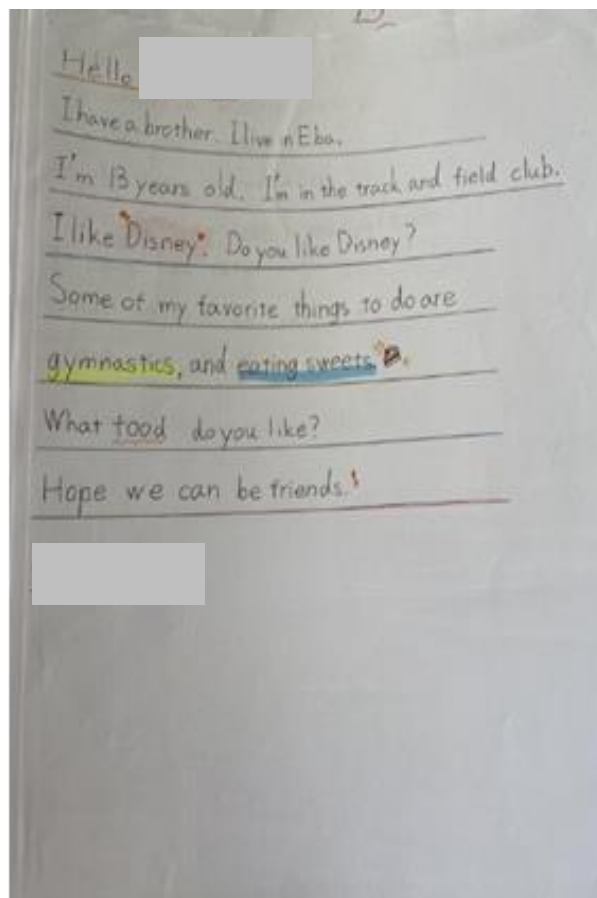 Hello
I have a brother. I live n Eba.
I'm 13 years old. I'm in the track and field club.
I like "Disney". Do you like Disney?
Some of my favorite things to do are
gymnastics, and eating sweets.
What food do you like?
Hope we can be friends.!